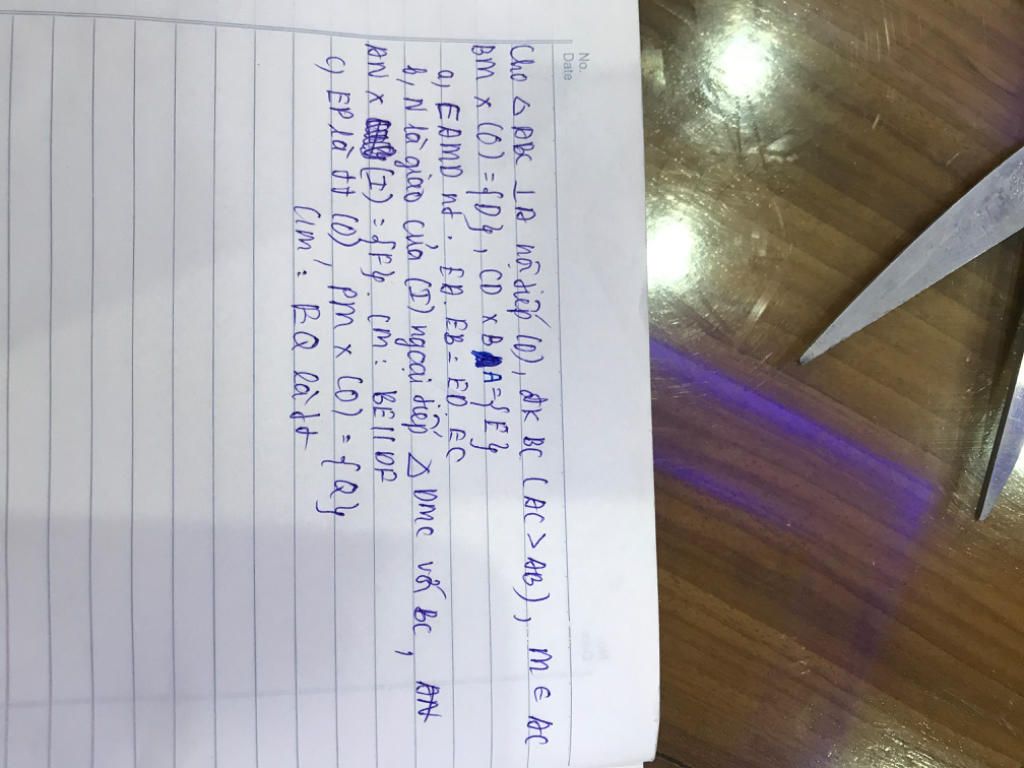 No.
Date
Cho △ ABC ⊥ A nội tiếp (O), đk BC (AC > AB), M ∈ AC
BM x (O) = {D}, CD x BA = {E}
a, EAMD nt. EA.EB = ED.EC
b, N là giao của (I) ngoại tiếp △ DMC với BC,
AN x (I) = {F}. CM: BE // DF
c, EP là tt (O), PM x (O) = {Q}
CM: EQ là tt